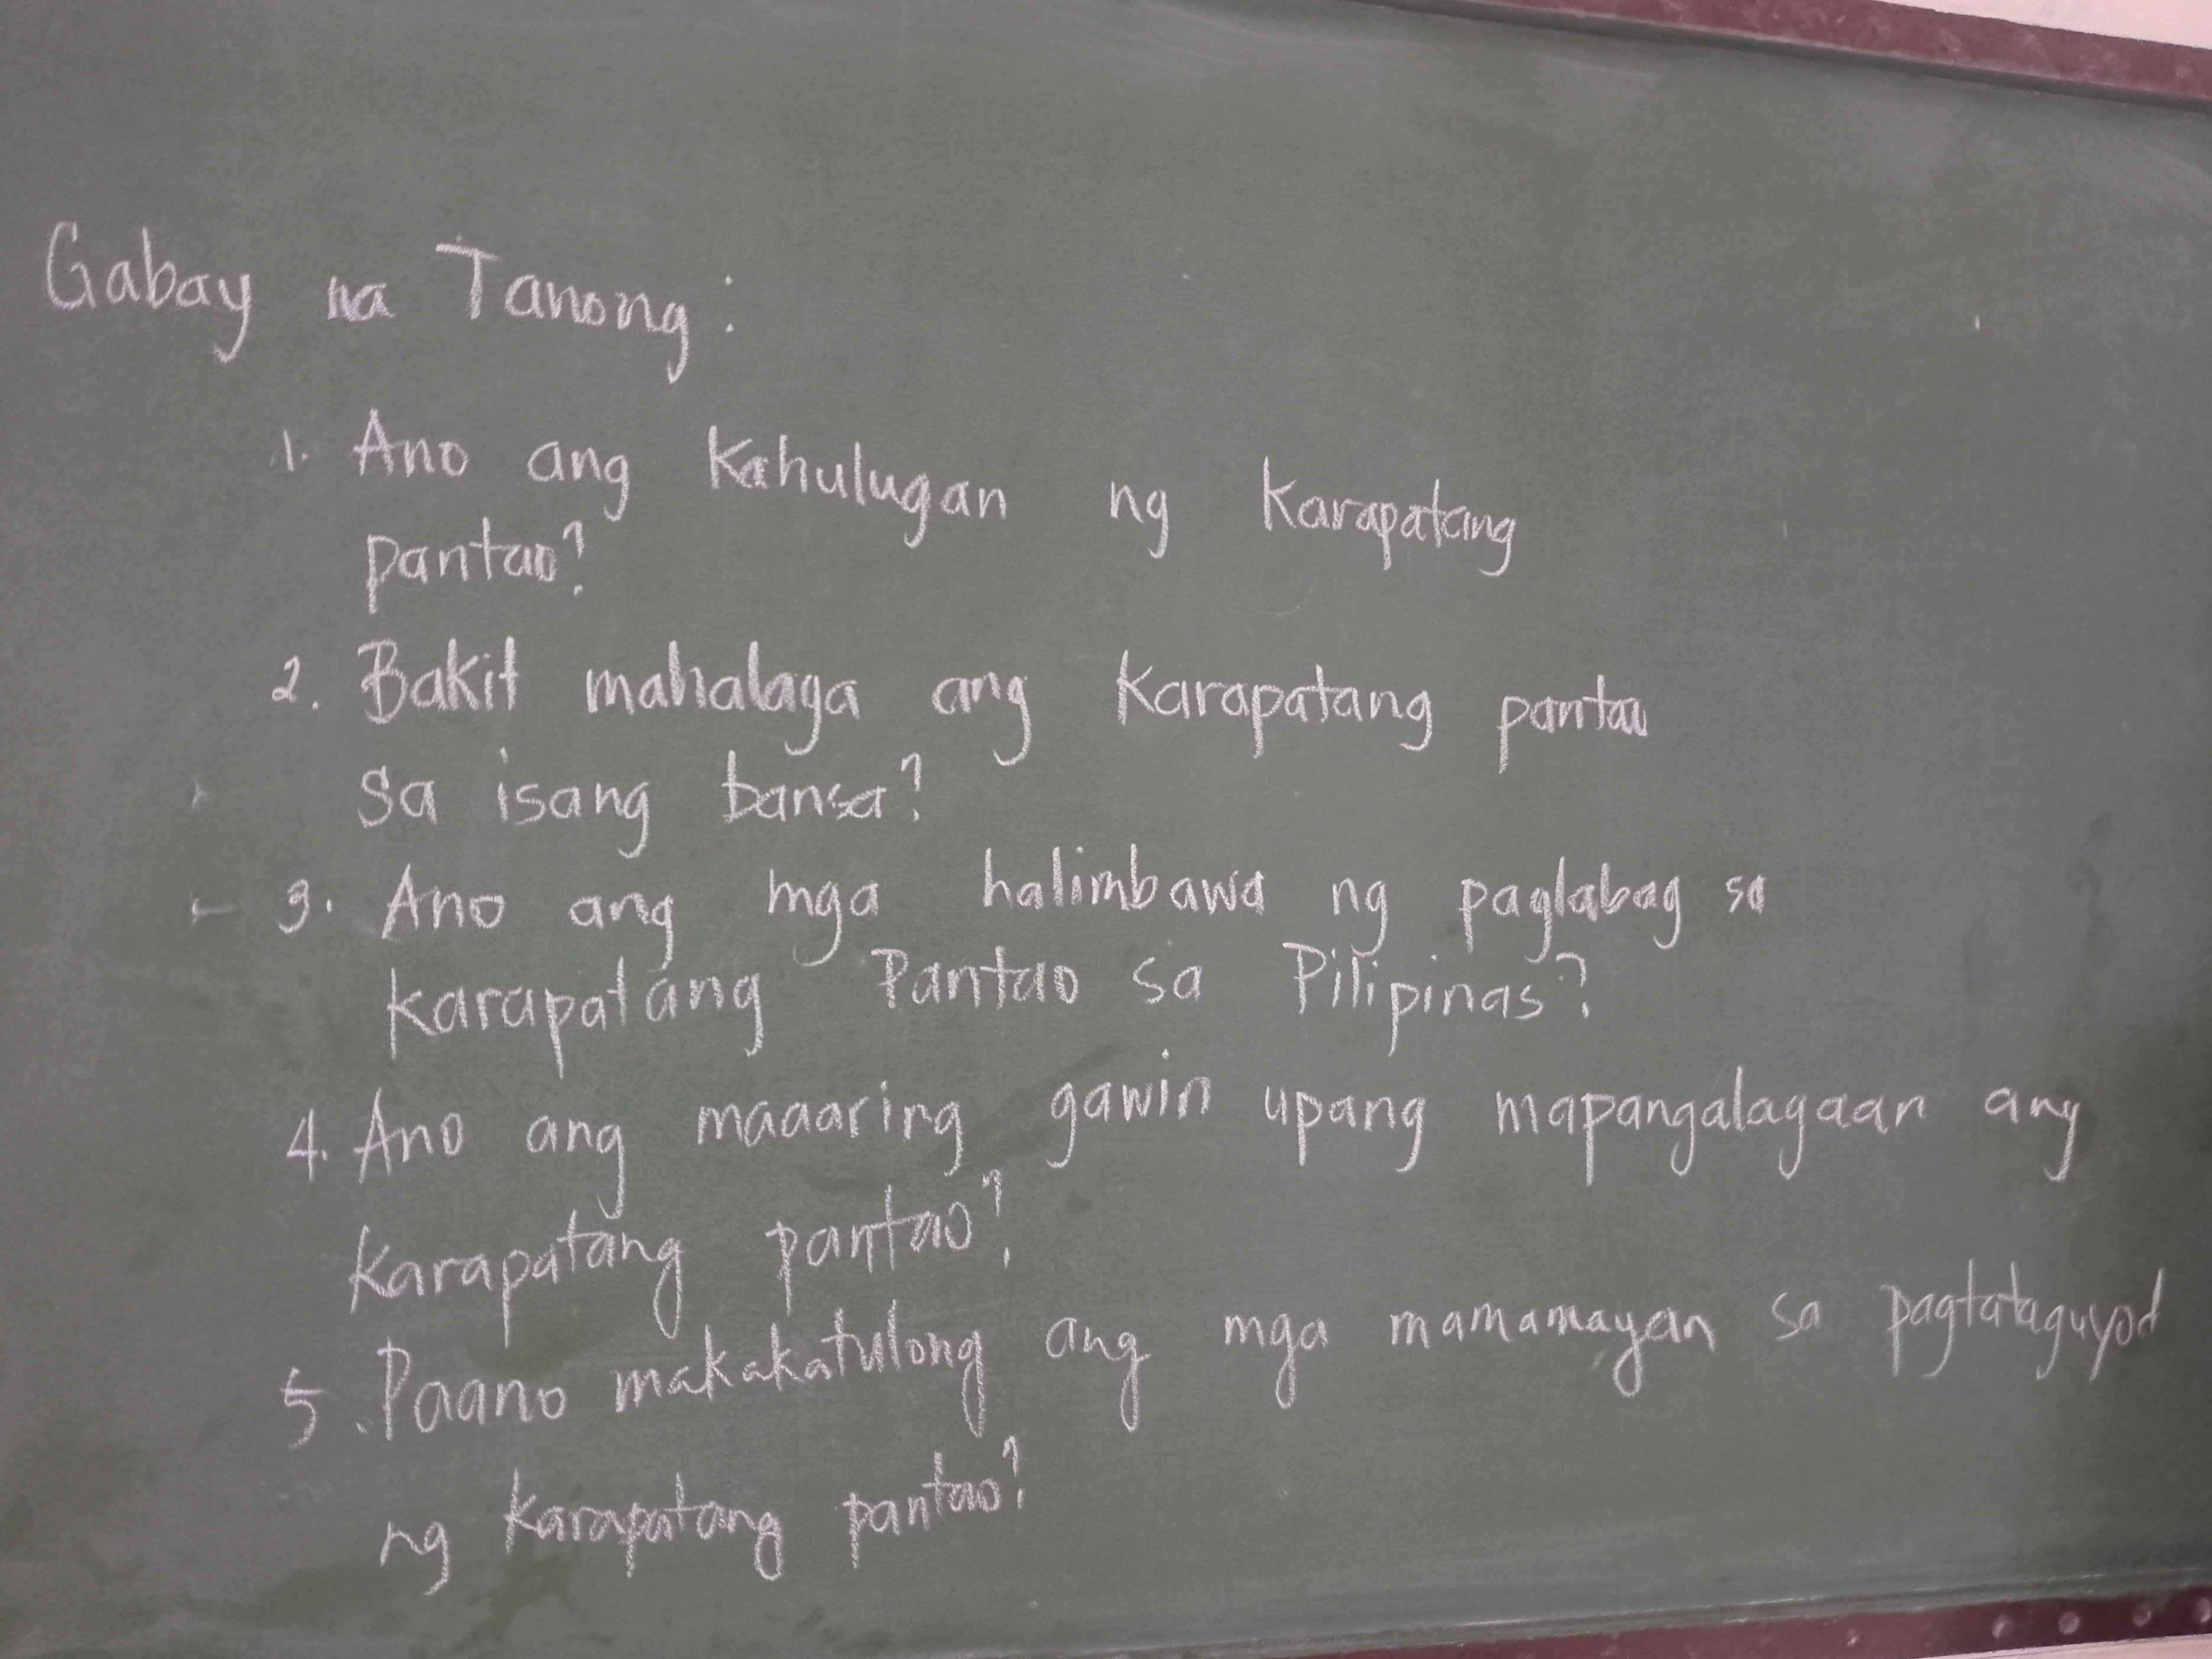 Gabay na Tanong:
1. Ano ang Kahulugan ng Karapatang
pantao?
2. Bakit mahalaga ang Karapatang pantao
sa isang bansa?
3. Ano ang mga halimbawa ng paglabag sa
Karapatang Pantao sa Pilipinas?
4. Ano ang maaaring gawin upang mapangalagaan ang
Karapatang pantao?
5. Paano makakatulong ang mga mamamayan sa pagtataguyod
ng Karapatang pantao?